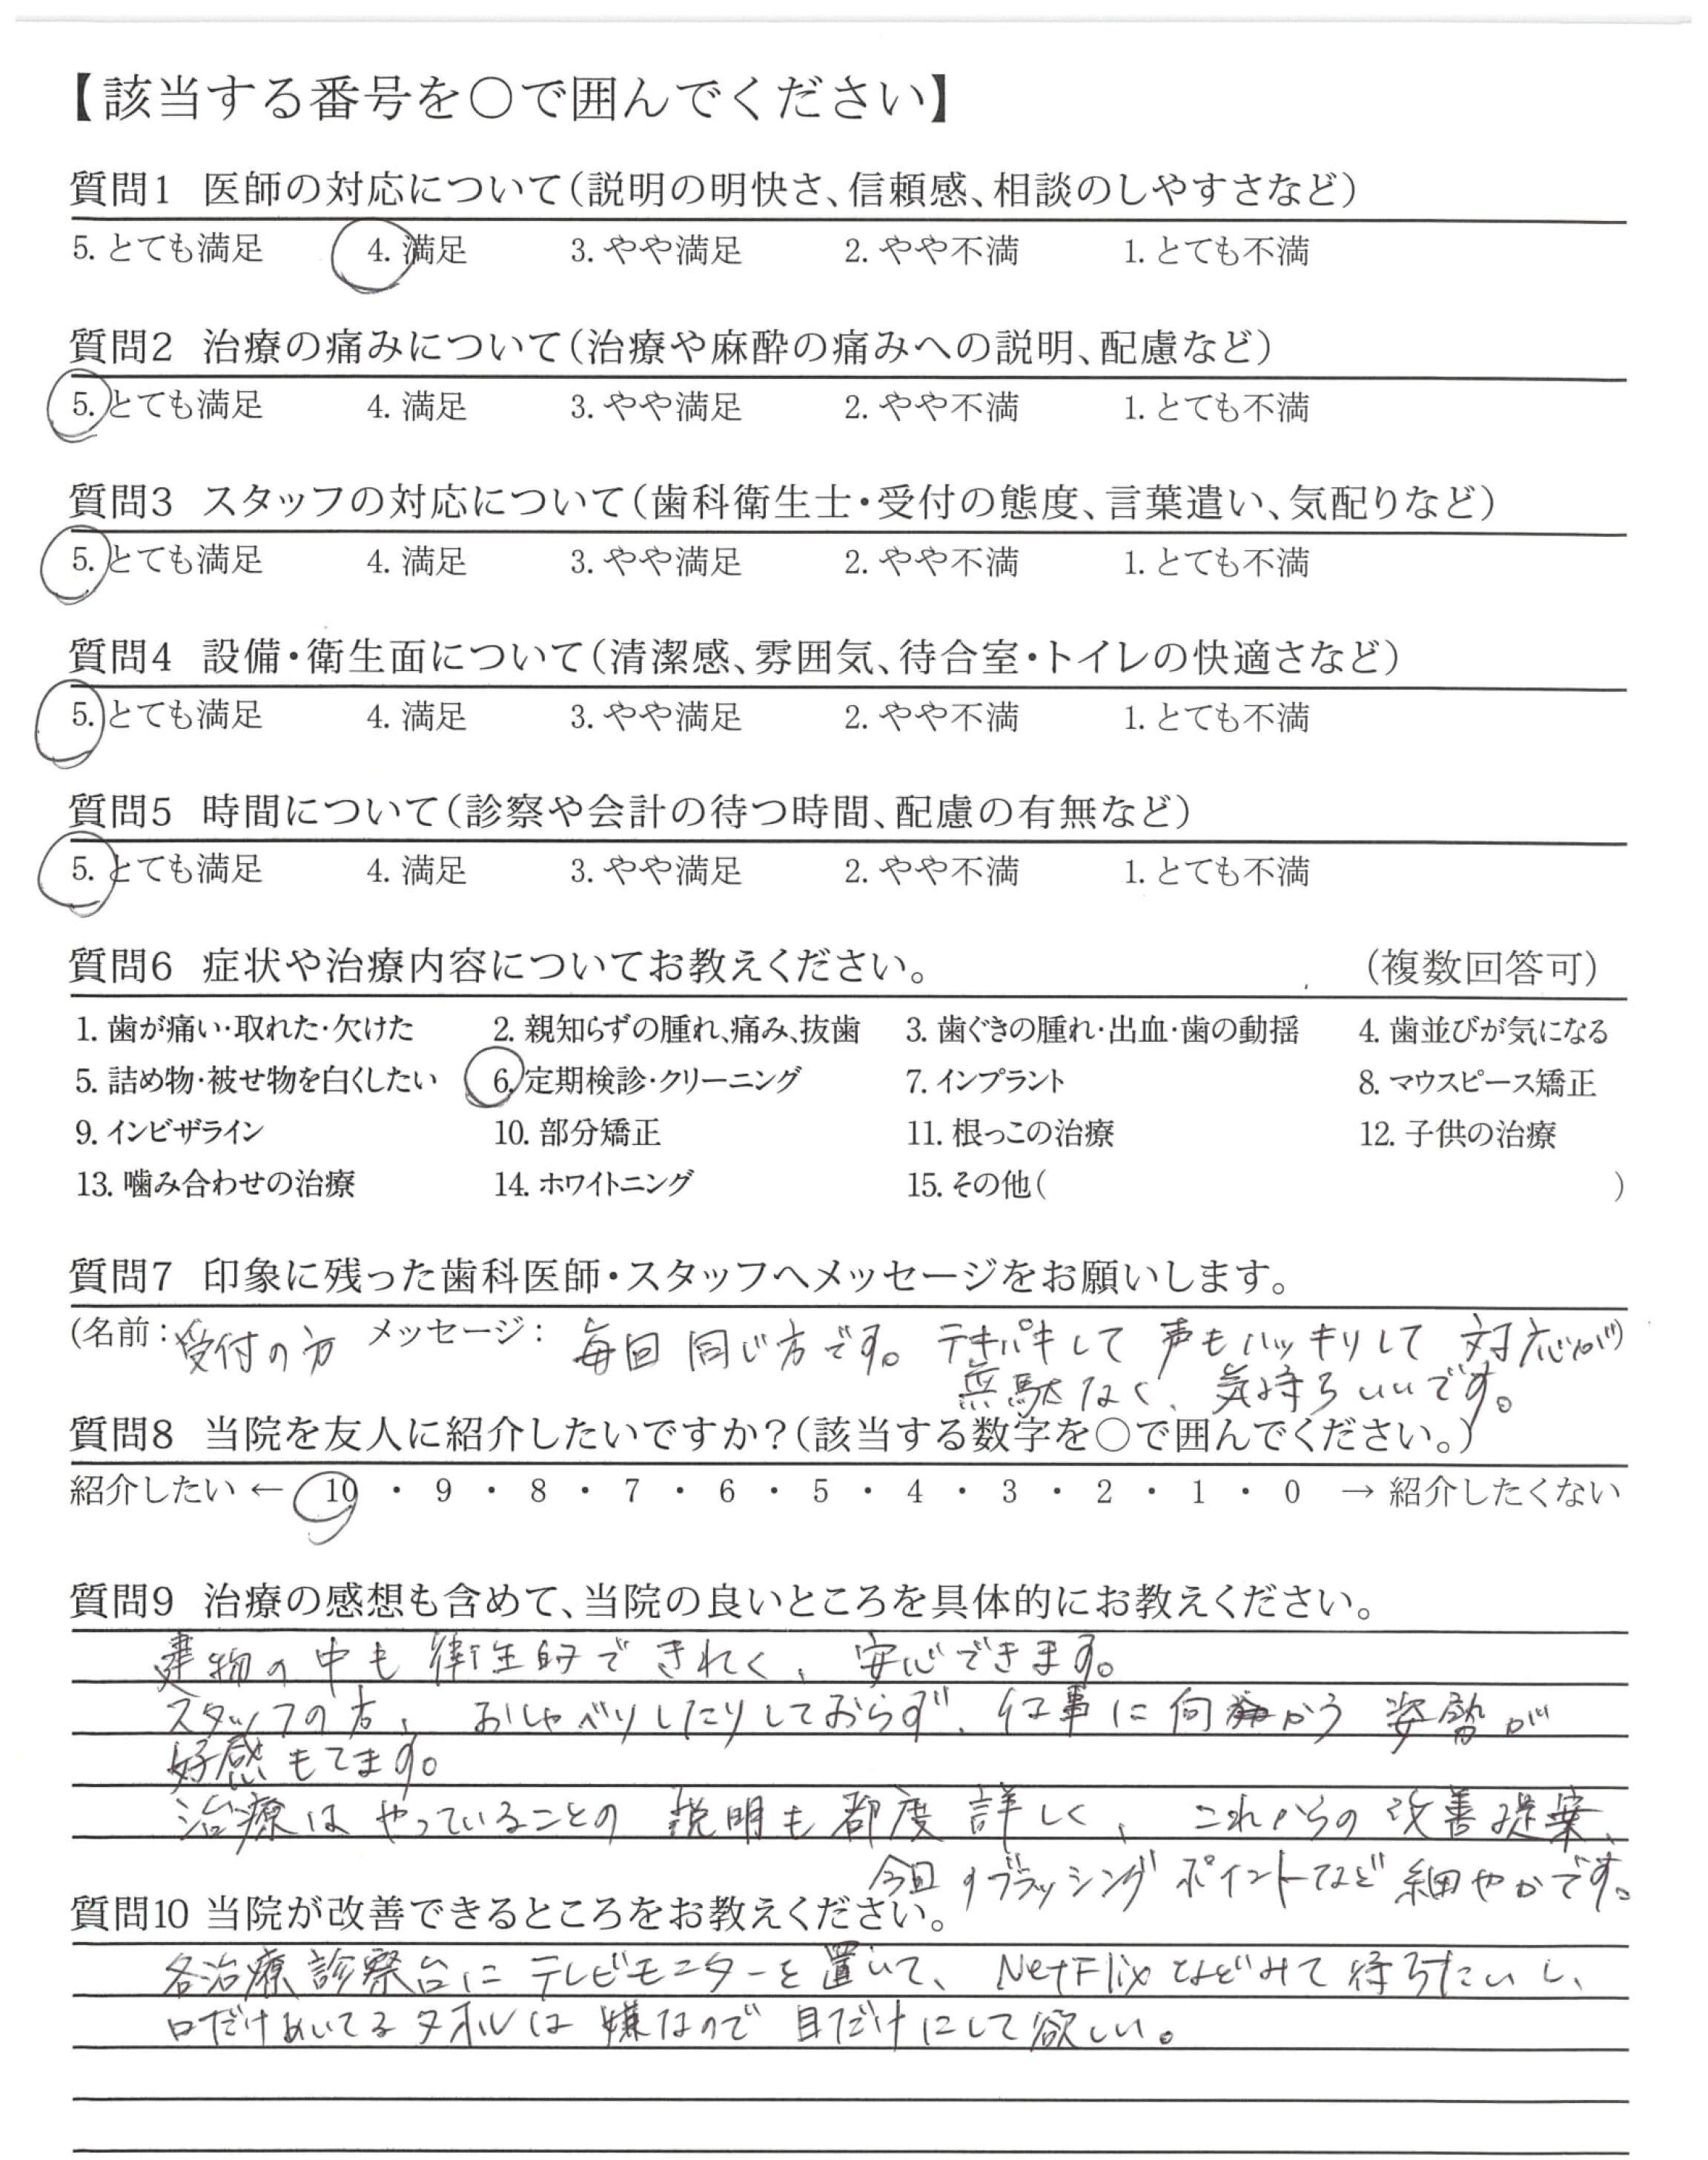 【該当する番号を○で囲んでください】
質問1 医師の対応について(説明の明快さ、信頼感、相談のしやすさなど)
5. とても満足 4. 満足 3. やや満足 2. やや不満 1. とても不満
質問2 治療の痛みについて(治療や麻酔の痛みへの説明、配慮など)
5. とても満足 4. 満足 3. やや満足 2. やや不満 1. とても不満
質問3 スタッフの対応について(歯科衛生士・受付の態度、言葉遣い、気配りなど)
5. とても満足 4. 満足 3. やや満足 2. やや不満 1. とても不満
質問4 設備・衛生面について(清潔感、雰囲気、待合室・トイレの快適さなど)
5. とても満足 4. 満足 3. やや満足 2. やや不満 1. とても不満
質問5 時間について(診察や会計の待つ時間、配慮の有無など)
5. とても満足 4. 満足 3. やや満足 2. やや不満 1. とても不満
質問6 症状や治療内容についてお教えください。 (複数回答可)
1. 歯が痛い・取れた・欠けた 2. 親知らずの腫れ、痛み、抜歯 3. 歯ぐきの腫れ・出血・歯の動揺 4. 歯並びが気になる
5. 詰め物・被せ物を白くしたい 6. 定期検診・クリーニング 7. インプラント 8. マウスピース矯正
9. インビザライン 10. 部分矯正 11. 根っこの治療 12. 子供の治療
13. 噛み合わせの治療 14. ホワイトニング 15. その他( )
質問7 印象に残った歯科医師・スタッフへメッセージをお願いします。
(名前: 受付の方 メッセージ: 毎回同じ方です。テキパキして声もハッキリして対応が)
無駄なく、気持ちいいです。
質問8 当院を友人に紹介したいですか?(該当する数字を○で囲んでください。)
紹介したい ← 10 ・ 9 ・ 8 ・ 7 ・ 6 ・ 5 ・ 4 ・ 3 ・ 2 ・ 1 ・ 0 → 紹介したくない
質問9 治療の感想も含めて、当院の良いところを具体的にお教えください。
建物の中も衛生的できれく、安心できます。
スタッフの方、おしゃべりしたりしておらず、仕事に向かう姿勢が
好感もてます。
治療はやっていることの説明も都度詳しく、これからの改善提案、
今回のブラッシングポイントなど細やかです。
質問10 当院が改善できるところをお教えください。
各治療診察台にテレビモニターを置いて、NetFlixなどみて待ちたいし、
口だけあいてるタオルは嫌なので目だけにして欲しい。